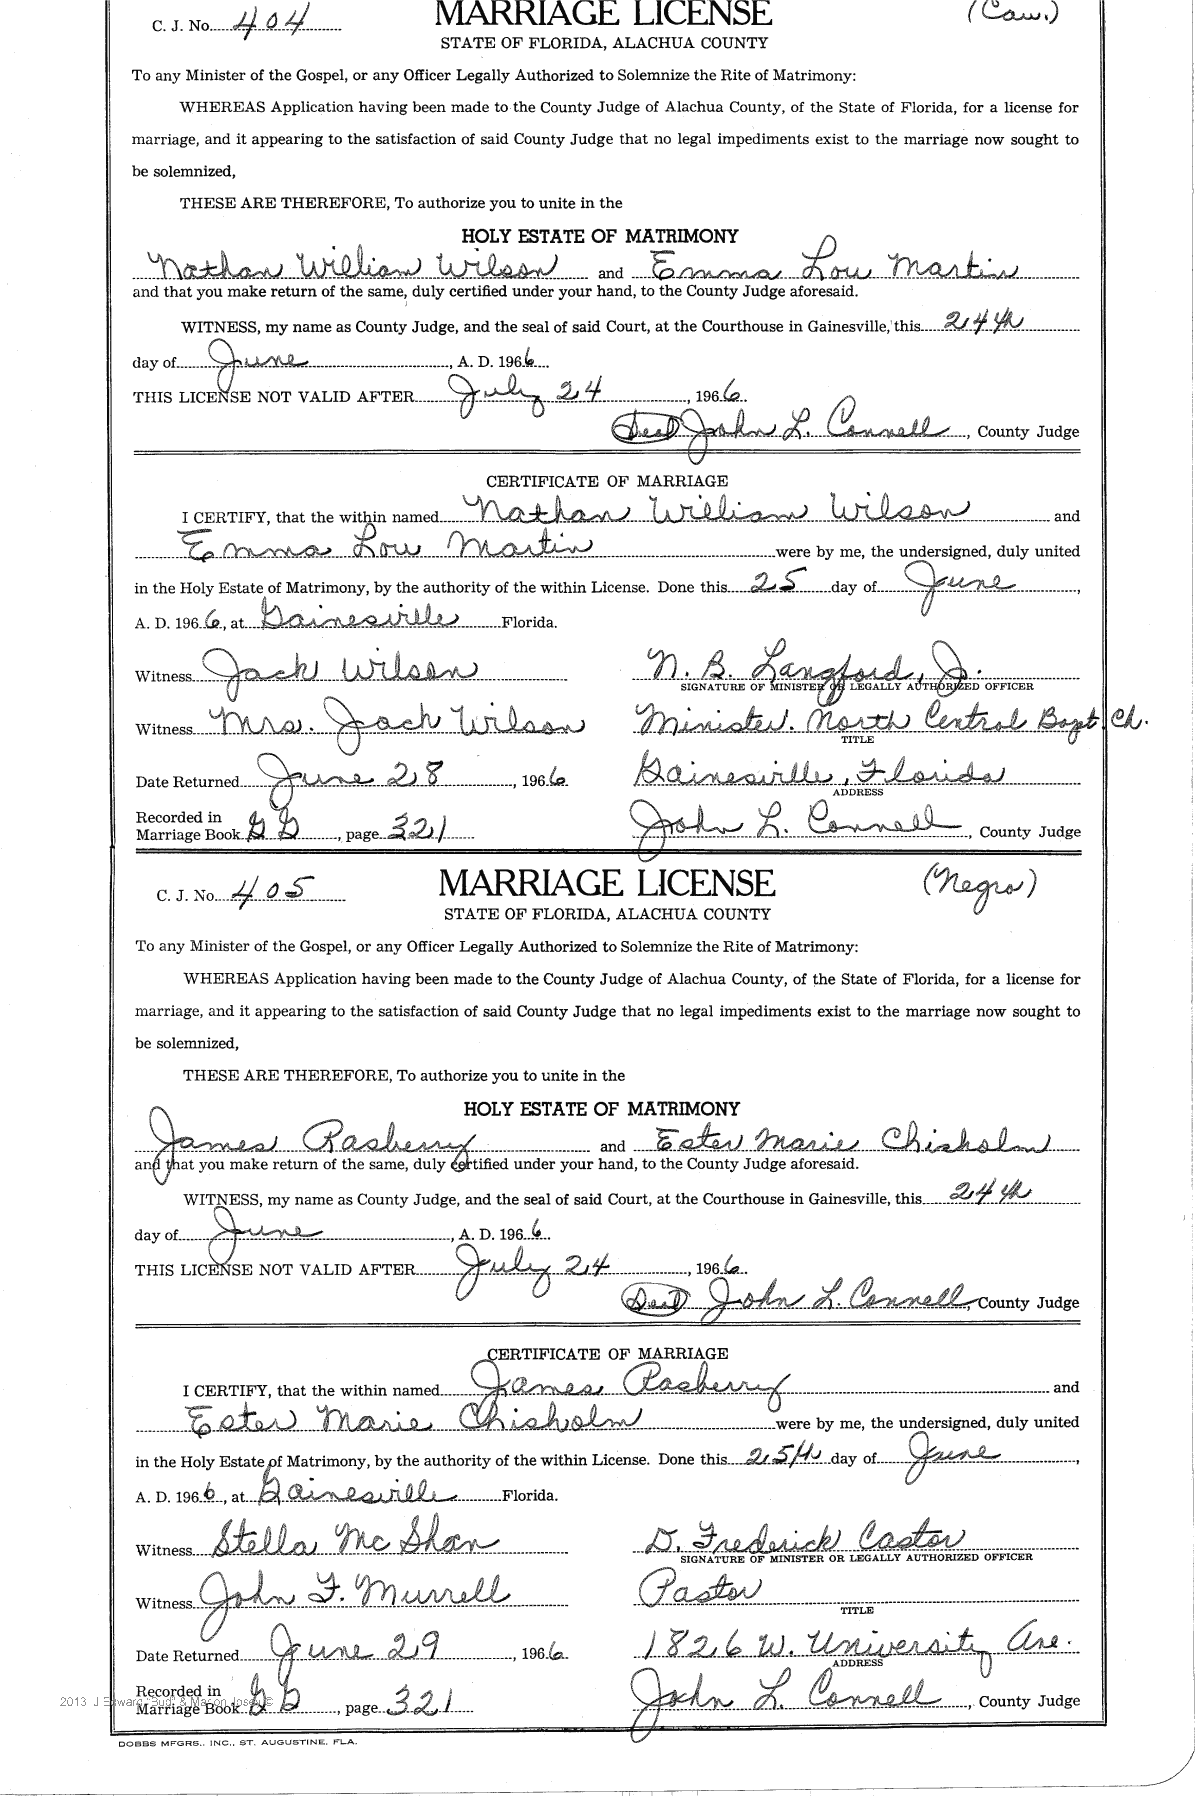 C. J. No. 404 MARRIAGE LICENSE (Cau.)
STATE OF FLORIDA, ALACHUA COUNTY
To any Minister of the Gospel, or any Officer Legally Authorized to Solemnize the Rite of Matrimony:
WHEREAS Application having been made to the County Judge of Alachua County, of the State of Florida, for a license for
marriage, and it appearing to the satisfaction of said County Judge that no legal impediments exist to the marriage now sought to
be solemnized,
THESE ARE THEREFORE, To authorize you to unite in the
HOLY ESTATE OF MATRIMONY
Nathan William Wilson and Emma Lou Martin
and that you make return of the same, duly certified under your hand, to the County Judge aforesaid.
WITNESS, my name as County Judge, and the seal of said Court, at the Courthouse in Gainesville, this 24th
day of June, A. D. 1966
THIS LICENSE NOT VALID AFTER July 24, 1966.
(Seal) John L. Connell, County Judge
CERTIFICATE OF MARRIAGE
I CERTIFY, that the within named Nathan William Wilson and
Emma Lou Martin were by me, the undersigned, duly united
in the Holy Estate of Matrimony, by the authority of the within License. Done this 25 day of June,
A. D. 1966, at Gainesville Florida.
Witness Jack Wilson N. B. Langford, Jr.
SIGNATURE OF MINISTER OR LEGALLY AUTHORIZED OFFICER
Witness Mrs. Jack Wilson Minister. North Central Bapt. Ch.
TITLE
Date Returned June 28, 1966. Gainesville, Florida
ADDRESS
Recorded in
Marriage Book GG, page 321 John L. Connell, County Judge
C. J. No. 405 MARRIAGE LICENSE (Negro)
STATE OF FLORIDA, ALACHUA COUNTY
To any Minister of the Gospel, or any Officer Legally Authorized to Solemnize the Rite of Matrimony:
WHEREAS Application having been made to the County Judge of Alachua County, of the State of Florida, for a license for
marriage, and it appearing to the satisfaction of said County Judge that no legal impediments exist to the marriage now sought to
be solemnized,
THESE ARE THEREFORE, To authorize you to unite in the
HOLY ESTATE OF MATRIMONY
James Rasberry and Ester Marie Chisholm
and that you make return of the same, duly certified under your hand, to the County Judge aforesaid.
WITNESS, my name as County Judge, and the seal of said Court, at the Courthouse in Gainesville, this 24th
day of June, A. D. 1966.
THIS LICENSE NOT VALID AFTER July 24, 1966.
(Seal) John L. Connell, County Judge
CERTIFICATE OF MARRIAGE
I CERTIFY, that the within named James Rasberry and
Ester Marie Chisholm were by me, the undersigned, duly united
in the Holy Estate of Matrimony, by the authority of the within License. Done this 25th day of June,
A. D. 1966, at Gainesville Florida.
Witness Stella McShan D. Frederick Castor
SIGNATURE OF MINISTER OR LEGALLY AUTHORIZED OFFICER
Witness John F. Murrell Pastor
TITLE
Date Returned June 29, 1966. 1826 W. University Ave.
ADDRESS
Recorded in
Marriage Book GG, page 321 John L. Connell, County Judge
2013 J Edward "Bud" & Marion Josey©
DOBBS MFGRS., INC., ST. AUGUSTINE, FLA.